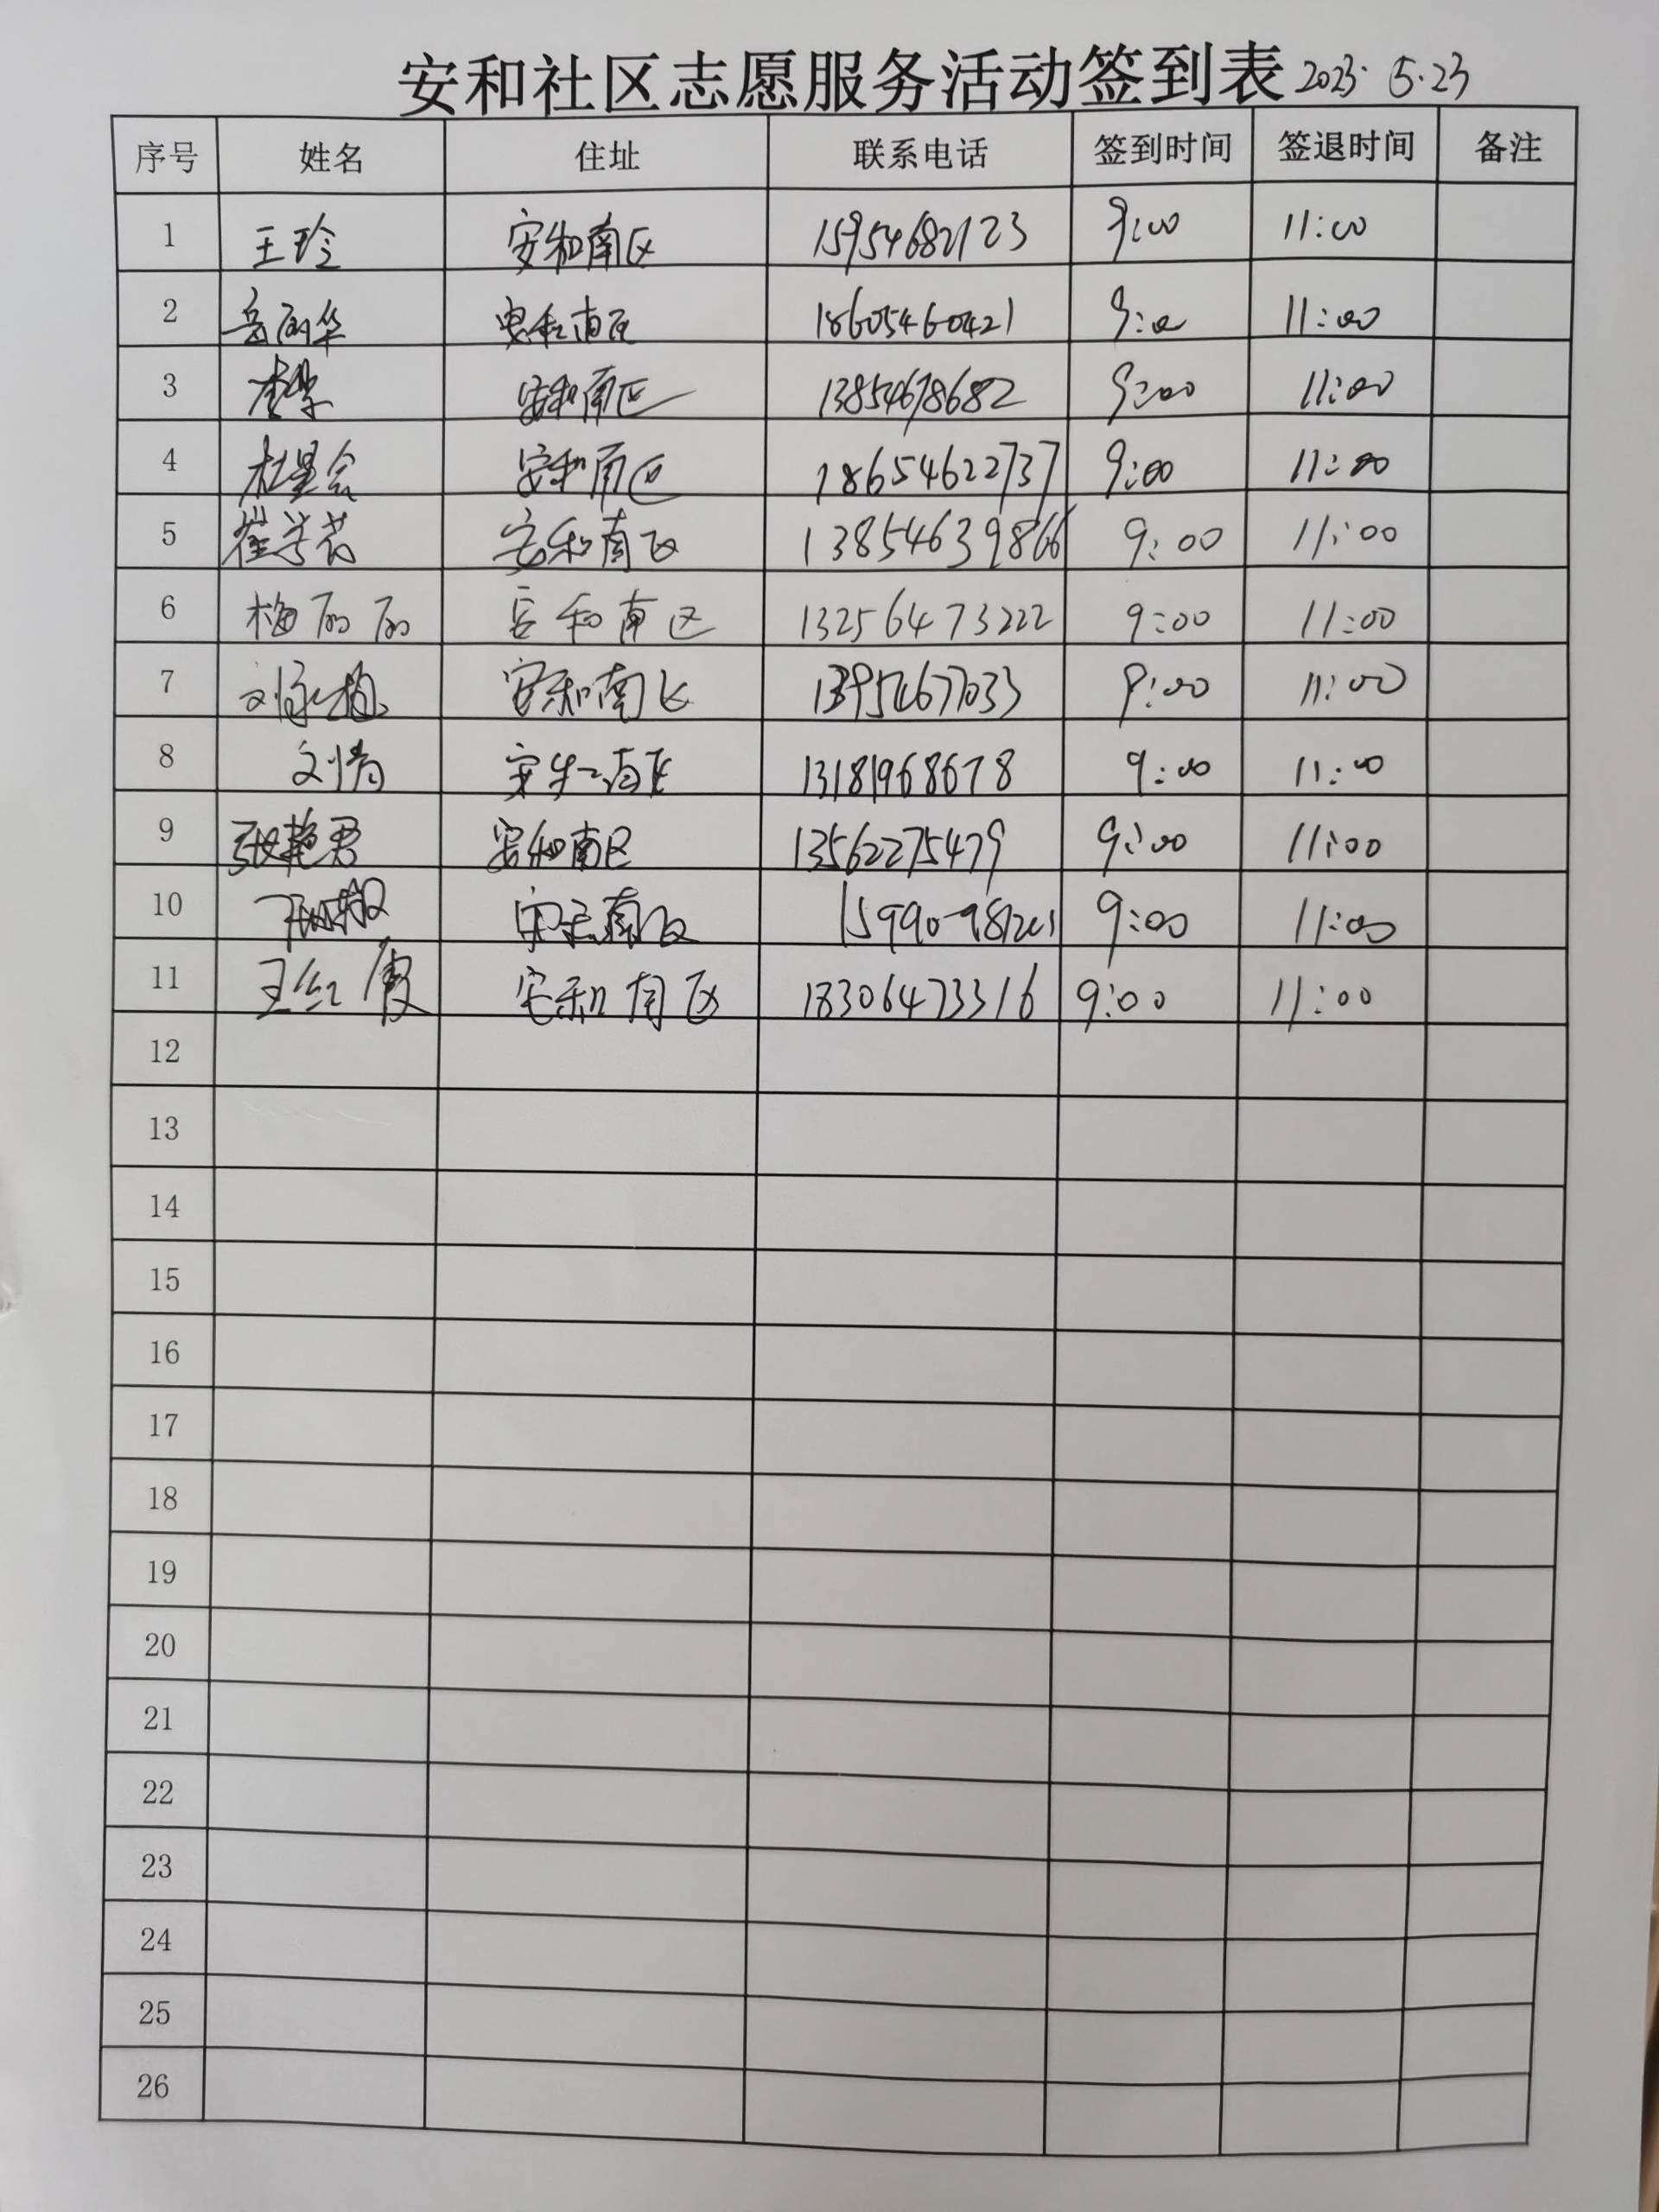 安和社区志愿服务活动签到表 2023.5.23
序号 姓名 住址 联系电话 签到时间 签退时间 备注
1 王玲 安和南区 15954682123 9:00 11:00
2 岳丽华 安和南区 18605460421 9:00 11:00
3 安和南区 13854678682 9:00 11:00
4 杜星会 安和南区 18654622737 9:00 11:00
5 崔学芳 安和南区 13854639866 9:00 11:00
6 梅丽丽 安和南区 13256473222 9:00 11:00
7 安和南区 13954677033 9:00 11:00
8 刘倩 安和南区 13181968678 9:00 11:00
9 张艳君 安和南区 13562275479 9:00 11:00
10 安和南区 9:00 11:00
11 王红霞 安和南区 18306473316 9:00 11:00
12
13
14
15
16
17
18
19
20
21
22
23
24
25
26